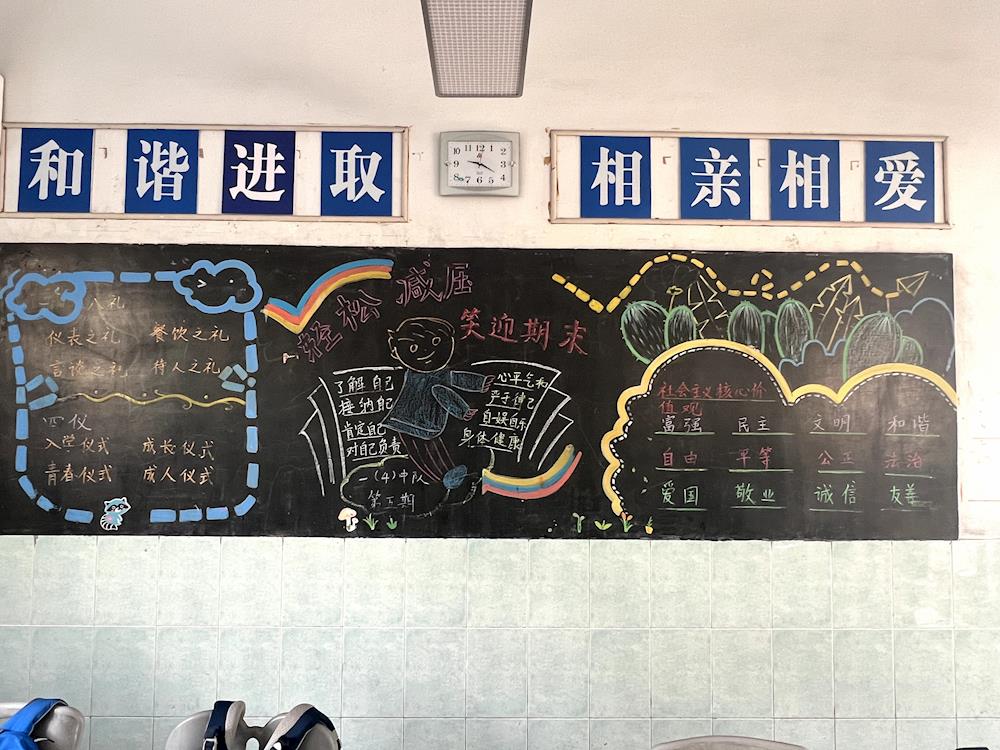 和谐进取
相亲相爱
八礼
仪表之礼 餐饮之礼
言谈之礼 待人之礼
四仪
入学仪式 成长仪式
青春仪式 成人仪式
轻松减压
笑迎期末
了解自己
接纳自己
肯定自己
对自己负责
心平气和
严于律己
自娱自乐
身体健康
一(4)中队
第五期
社会主义核心价
值观
富强 民主 文明 和谐
自由 平等 公正 法治
爱国 敬业 诚信 友善